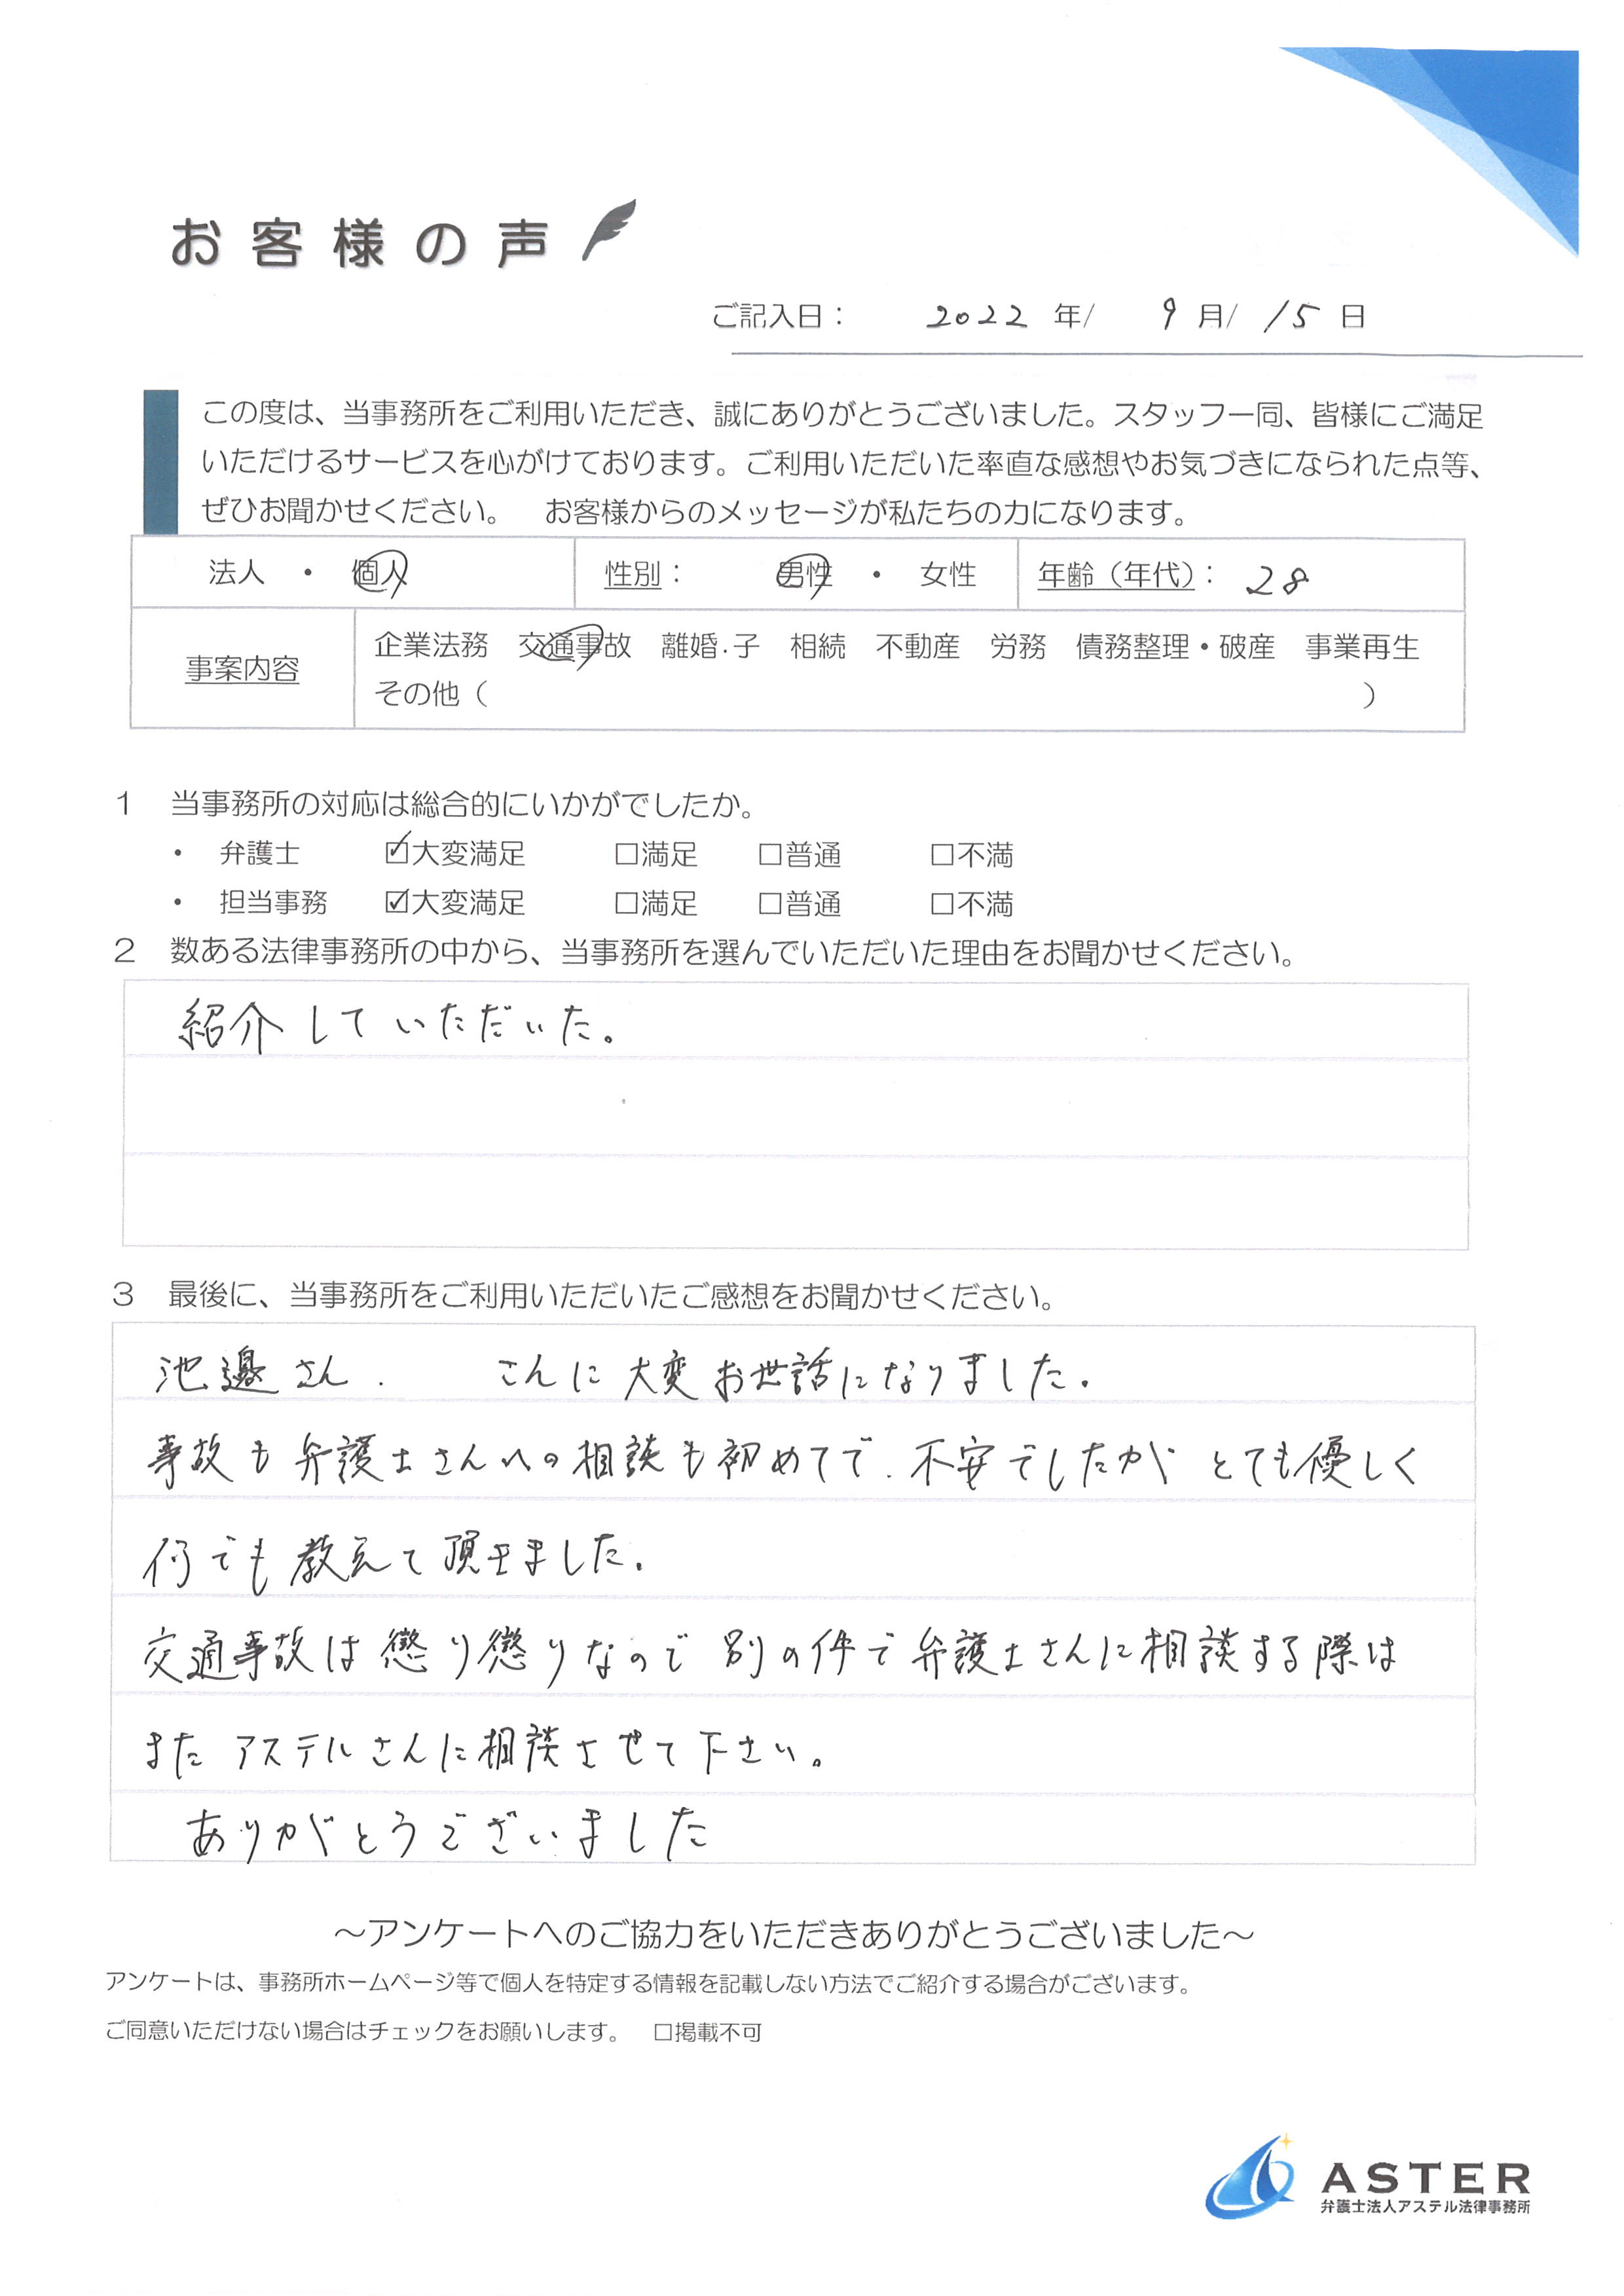 お客様の声
ご記入日： 2022 年/ 9 月/ 15 日
この度は、当事務所をご利用いただき、誠にありがとうございました。スタッフ一同、皆様にご満足
いただけるサービスを心がけております。ご利用いただいた率直な感想やお気づきになられた点等、
ぜひお聞かせください。　お客様からのメッセージが私たちの力になります。
法人 ・ 個人　性別： 男性 ・ 女性　年齢（年代）： 28
事案内容
企業法務　交通事故　離婚.子　相続　不動産　労務　債務整理・破産　事業再生
その他（　）
1　当事務所の対応は総合的にいかがでしたか。
・　弁護士　☑大変満足　□満足　□普通　□不満
・　担当事務　☑大変満足　□満足　□普通　□不満
2　数ある法律事務所の中から、当事務所を選んでいただいた理由をお聞かせください。
紹介していただいた。
3　最後に、当事務所をご利用いただいたご感想をお聞かせください。
池邉さん.　さんに大変お世話になりました.
事故も弁護士さんへの相談も初めてで.不安でしたが とても優しく
何でも教えて頂きました.
交通事故は懲り懲りなので 別の件で弁護士さんに相談する際は
また アステルさんに相談させて下さい。
ありがとうございました
～アンケートへのご協力をいただきありがとうございました～
アンケートは、事務所ホームページ等で個人を特定する情報を記載しない方法でご紹介する場合がございます。
ご同意いただけない場合はチェックをお願いします。　□掲載不可
ASTER
弁護士法人アステル法律事務所